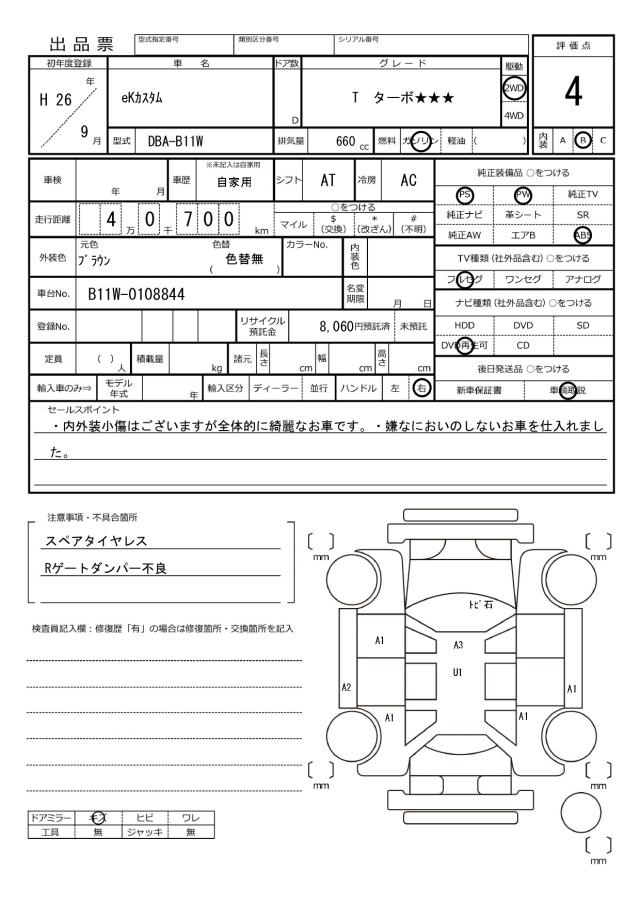 出品票 型式指定番号 類別区分番号 シリアル番号 評価点
初年度登録 車名 ドア数 グレード 駆動
H 26 年 eKカスタム D T ターボ★★★ 2WD 4
4WD
9 月 型式 DBA-B11W 排気量 660 cc 燃料 ガソリン 軽油 ( ) 内装 A B C
車検 年 月 車歴 ※未記入は自家用 自家用 シフト AT 冷房 AC
走行距離 4 万 0 千 7 0 0 km ○をつける
マイル $ (交換) * (改ざん) # (不明)
外装色 元色 ブラウン 色替 ( 色替無 ) カラーNo. 内装色
車台No. B11W-0108844 名変期限 月 日
登録No. リサイクル預託金 8,060円預託済 未預託
定員 ( ) 人 積載量 kg 諸元 長さ cm 幅 cm 高さ cm
輸入車のみ⇒ モデル年式 年 輸入区分 ディーラー 並行 ハンドル 左 右
純正装備品 ○をつける
PS PW 純正TV
純正ナビ 革シート SR
純正AW エアB ABS
TV種類 (社外品含む) ○をつける
フルセグ ワンセグ アナログ
ナビ種類 (社外品含む) ○をつける
HDD DVD SD
DVD再生可 CD
後日発送品 ○をつける
新車保証書 車輌取説
セールスポイント
・内外装小傷はございますが全体的に綺麗なお車です。・嫌なにおいのしないお車を仕入れまし
た。
注意事項・不具合箇所
スペアタイヤレス
Rゲートダンパー不良
検査員記入欄：修復歴「有」の場合は修復箇所・交換箇所を記入
〔 〕 mm 〔 〕 mm
トビ石
A1 A3
U1
A2 A1
A1 A1
〔 〕 mm 〔 〕 mm
〔 〕 mm
ドアミラー キズ ヒビ ワレ
工具 無 ジャッキ 無